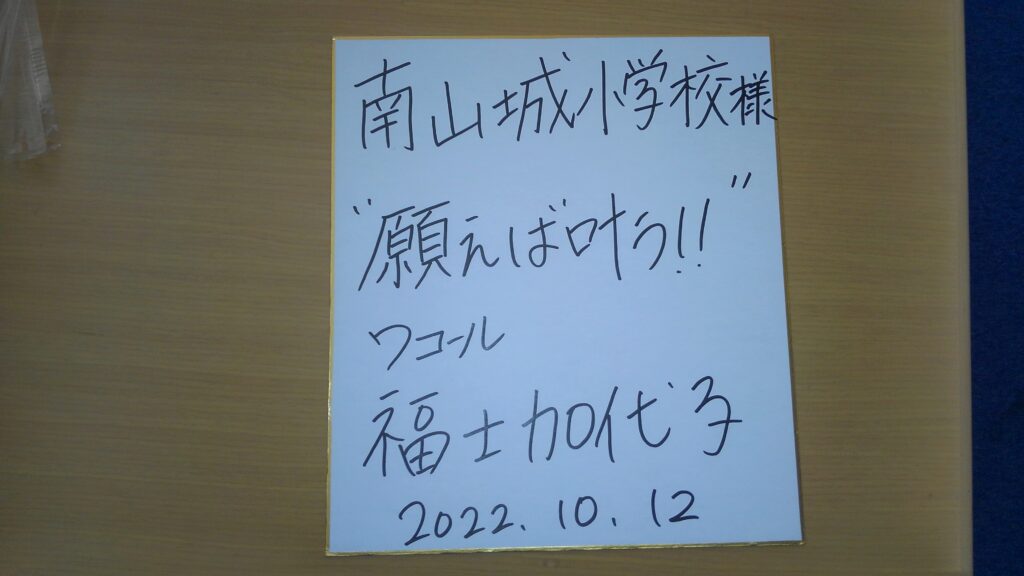 南山城小学校様
"願えば叶う!!"
ワコール
福士加代子
2022.10.12